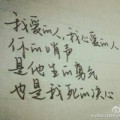 我爱的人,我心爱的人
你的哨声
是他生的勇气
也是我死的决心